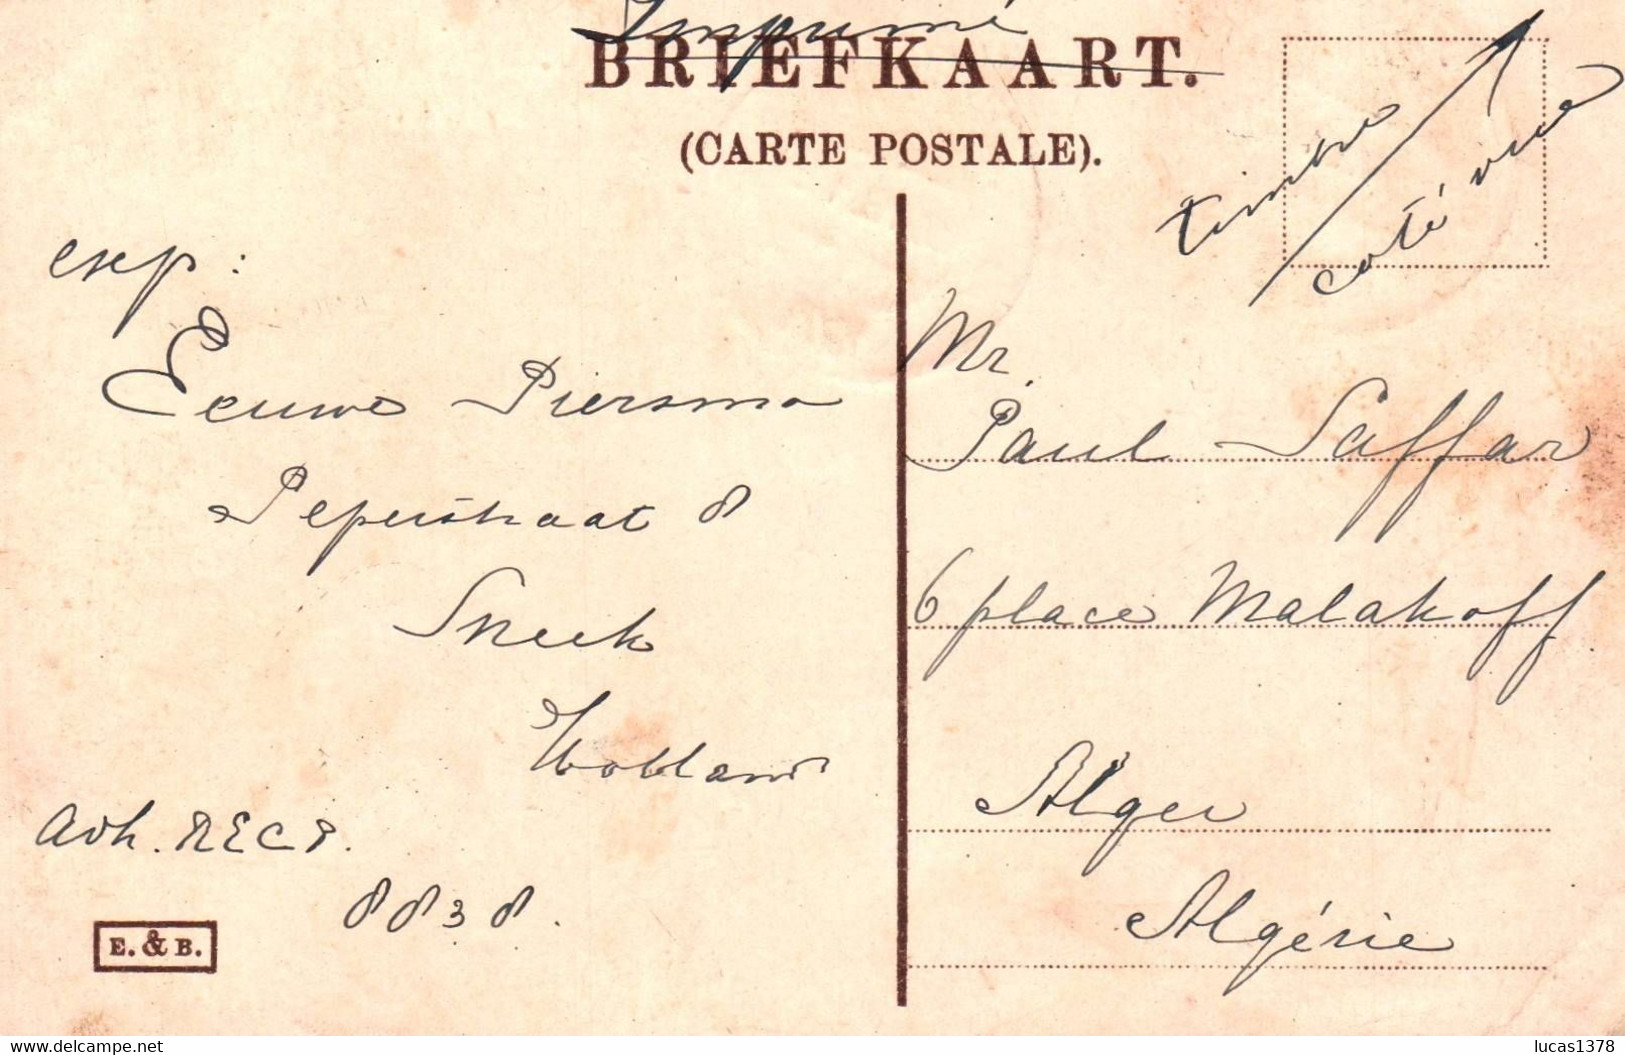 Imprimé
BRIEFKAART.
(CARTE POSTALE).
timbre
coté vue
exp:
Eeuwe Piersma
Peperstraat 8
Sneek
Holland
adh. RECP.
8838.
E. & B.
Mr.
Paul Saffar
6 place Malakoff
Alger
Algérie
www.delcampe.net
lucas1378